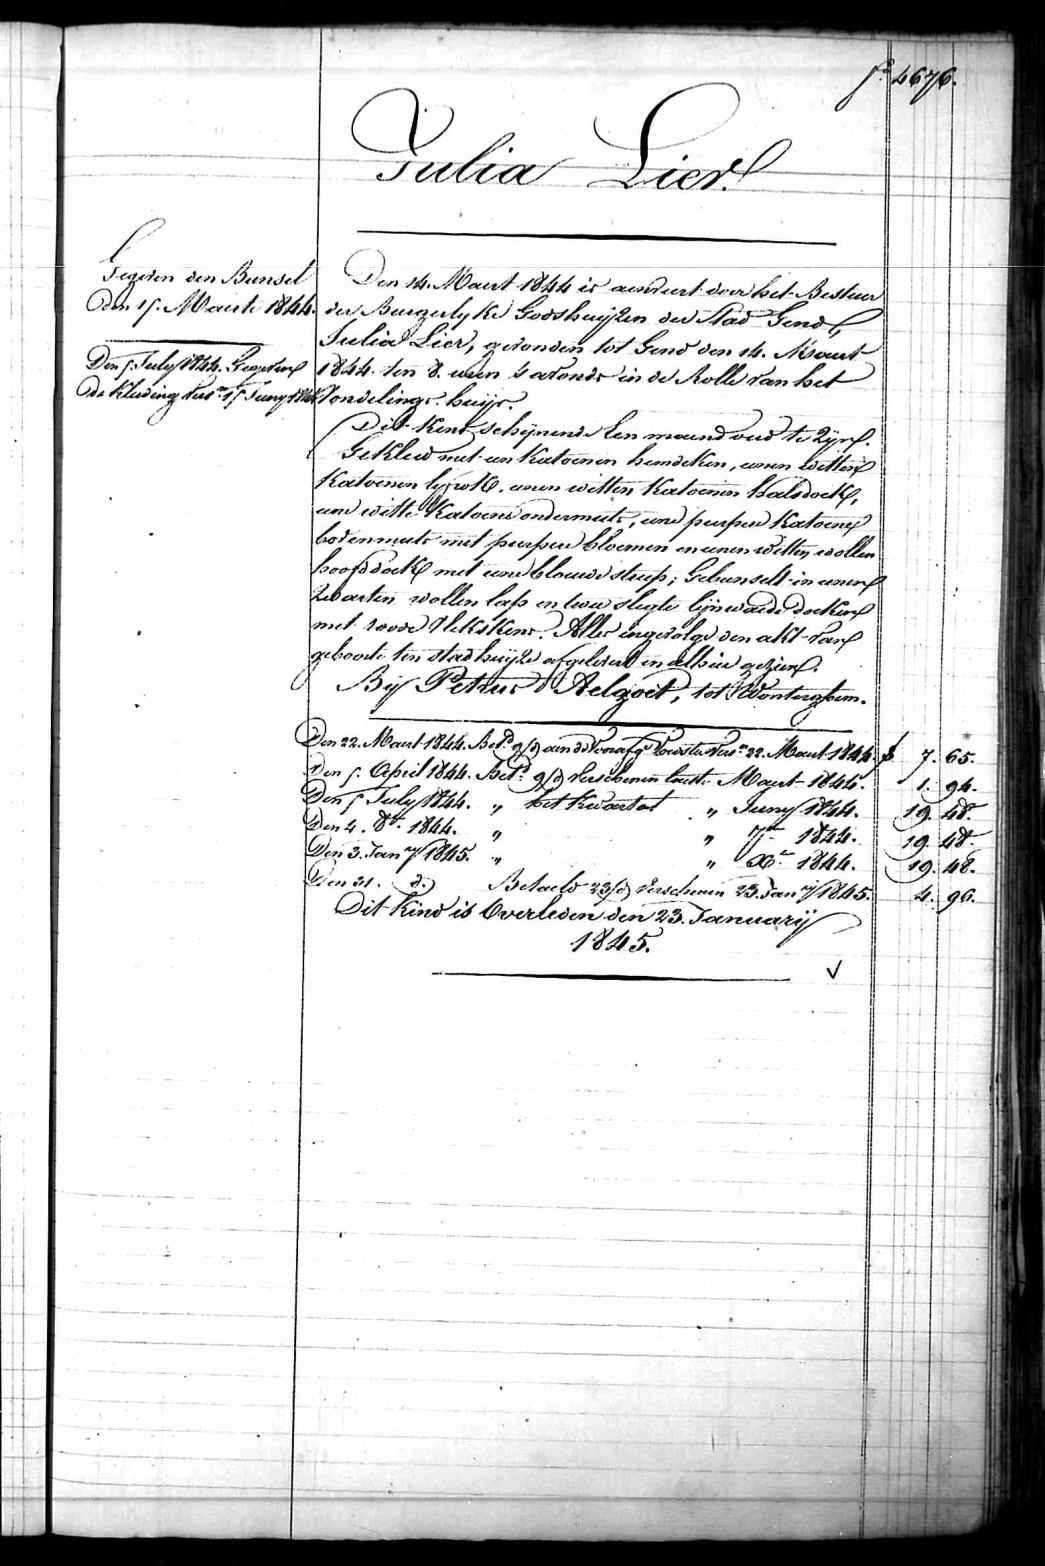 4676.
Julia Lier
Gegeven den Bunsel
Den 15. Maarte 1844.
Den 5 July 1844. Gegeven
de Kleeding 15 Juny 1844
Den 14. Maert 1844 is aenveert door het Bestuer
der Burgerlyke Godshuijzen der Stad Gend,
Julia Lier, gevonden tot Gend den 14. Maart
1844. ten 8. uren s'avonds in de Rolle van het
Vondelings-huijs.
Dit Kind schijnende een maend oud te zijn.
Gekleed met een Katoenen hemdeken, eenen witten
Katoenen lyfrok, eenen witten Katoenen halsdoek,
eene witte Katoene ondermuts, eene purpere Katoene
bovenmuts met purpere bloemen en eenen witten wollen
hoofddoek met eene blauwe streep; Gebunselt in eenen
zwarten wollen lap en twee slegte lijnwaede doeken
met roode vlekskens. Alles ingevolge den akt van
geboorte ten stadhuijze afgelevert en alhier gezien.
Bij Petrus D'Aelgoet, tot Wonterghem.
Den 22. Maert 1844. Bet.d aen de 22. Maert 1844 7. 65.
Den 5. April 1844. Bet.d verschenen Maert 1844. 1. 94.
Den 5 July 1844. „ het Kwartal „ Juny 1844. 19. 48.
Den 4. 8.br 1844. „ „ 7.br 1844. 19. 48.
Den 3. Jan.y 1845. „ „ X.br 1844. 19. 48.
Den 31. d.o Betaeld verschenen 23. Jan.y 1845. 4. 96.
Dit Kind is Overleden den 23. Januarij
1845.